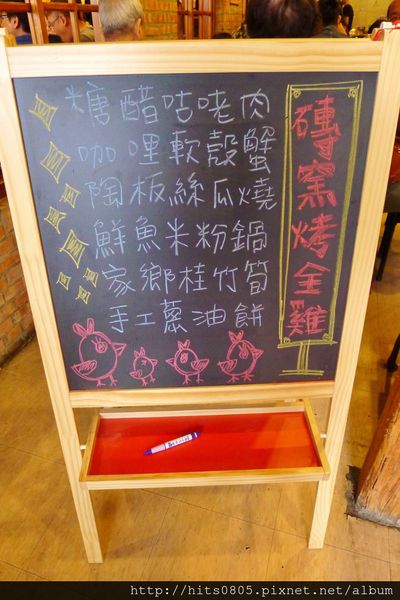 糖醋咕咾肉
咖哩軟殼蟹
陶板絲瓜燒
鮮魚米粉鍋
家鄉桂竹筍
手工蔥油餅
磚窯烤全雞
http://hits0805.pixnet.net/album